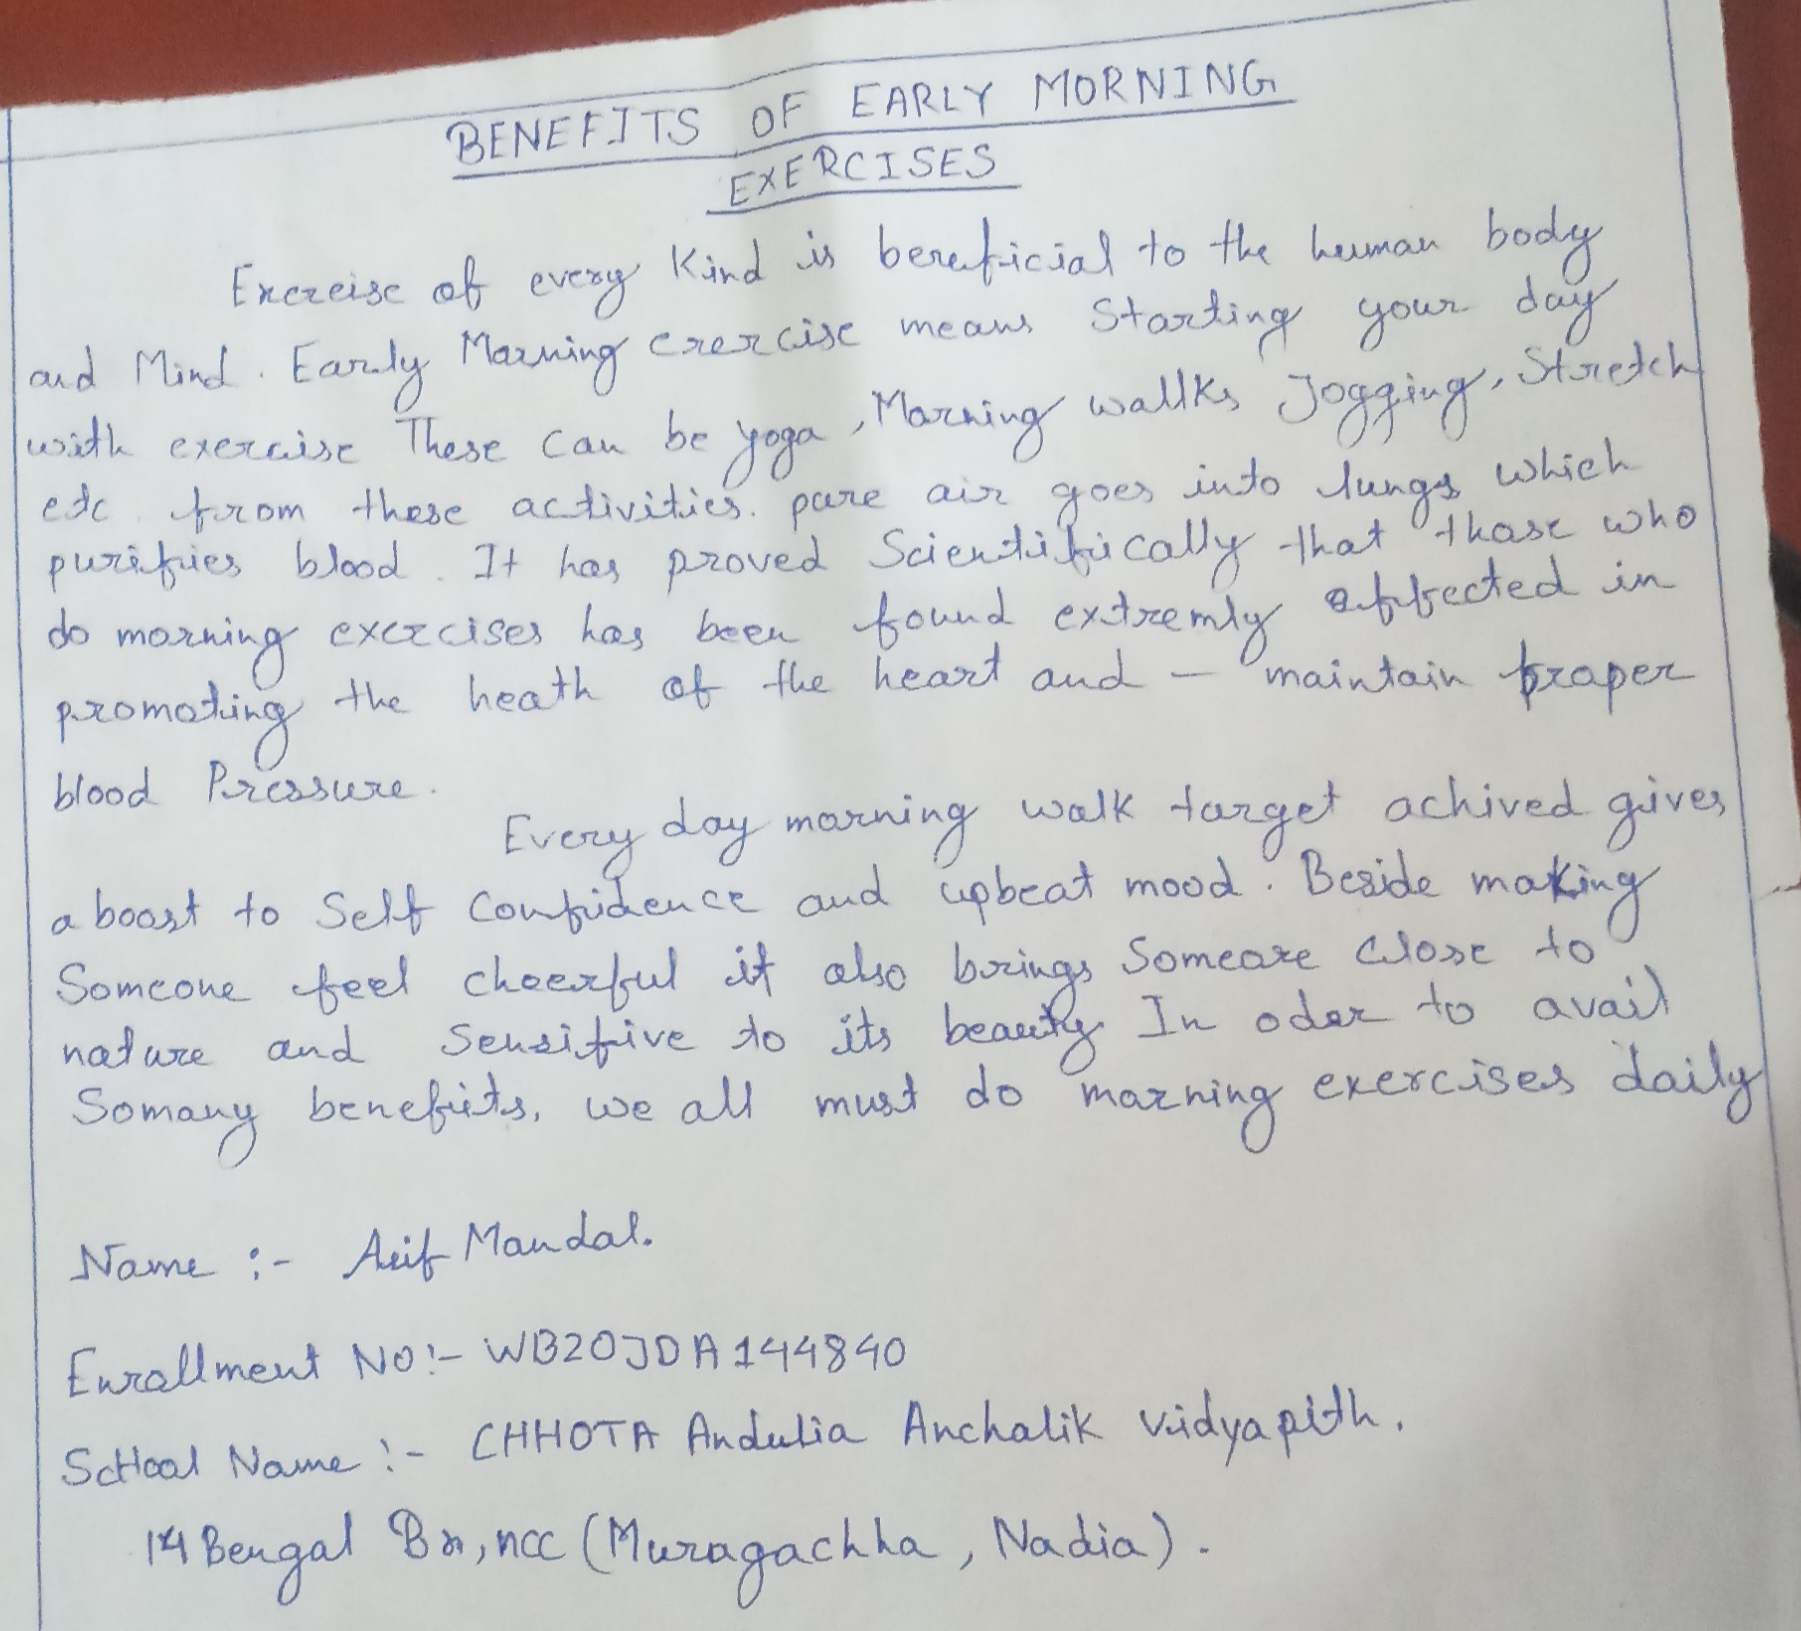 BENEFITS OF EARLY MORNING
EXERCISES
Exercise of every Kind is beneficial to the human body
and Mind. Early Morning exercise means Starting your day
with exercise These Can be yoga, Morning wallks Jogging, Stretch
etc from these activities. pure air goes into lungs which
purifies blood. It has proved Scientifically that those who
do morning exercises has been found extremly affected in
promoting the heath of the heart and - maintain proper
blood Pressure.
Every day morning walk target achived gives
a boost to Self Confidence and upbeat mood. Beside making
Someone feel cheerful it also brings Someone Close to
nature and Sensitive to its beauty. In oder to avail
Somany benefits, we all must do morning exercises daily
Name :- Arif Mandal.
Enrollment NO:- WB20JDA144840
SCHool Name :- CHHOTA Andulia Anchalik Vidyapith.
14 Bengal Bn, ncc (Muragachha, Nadia).